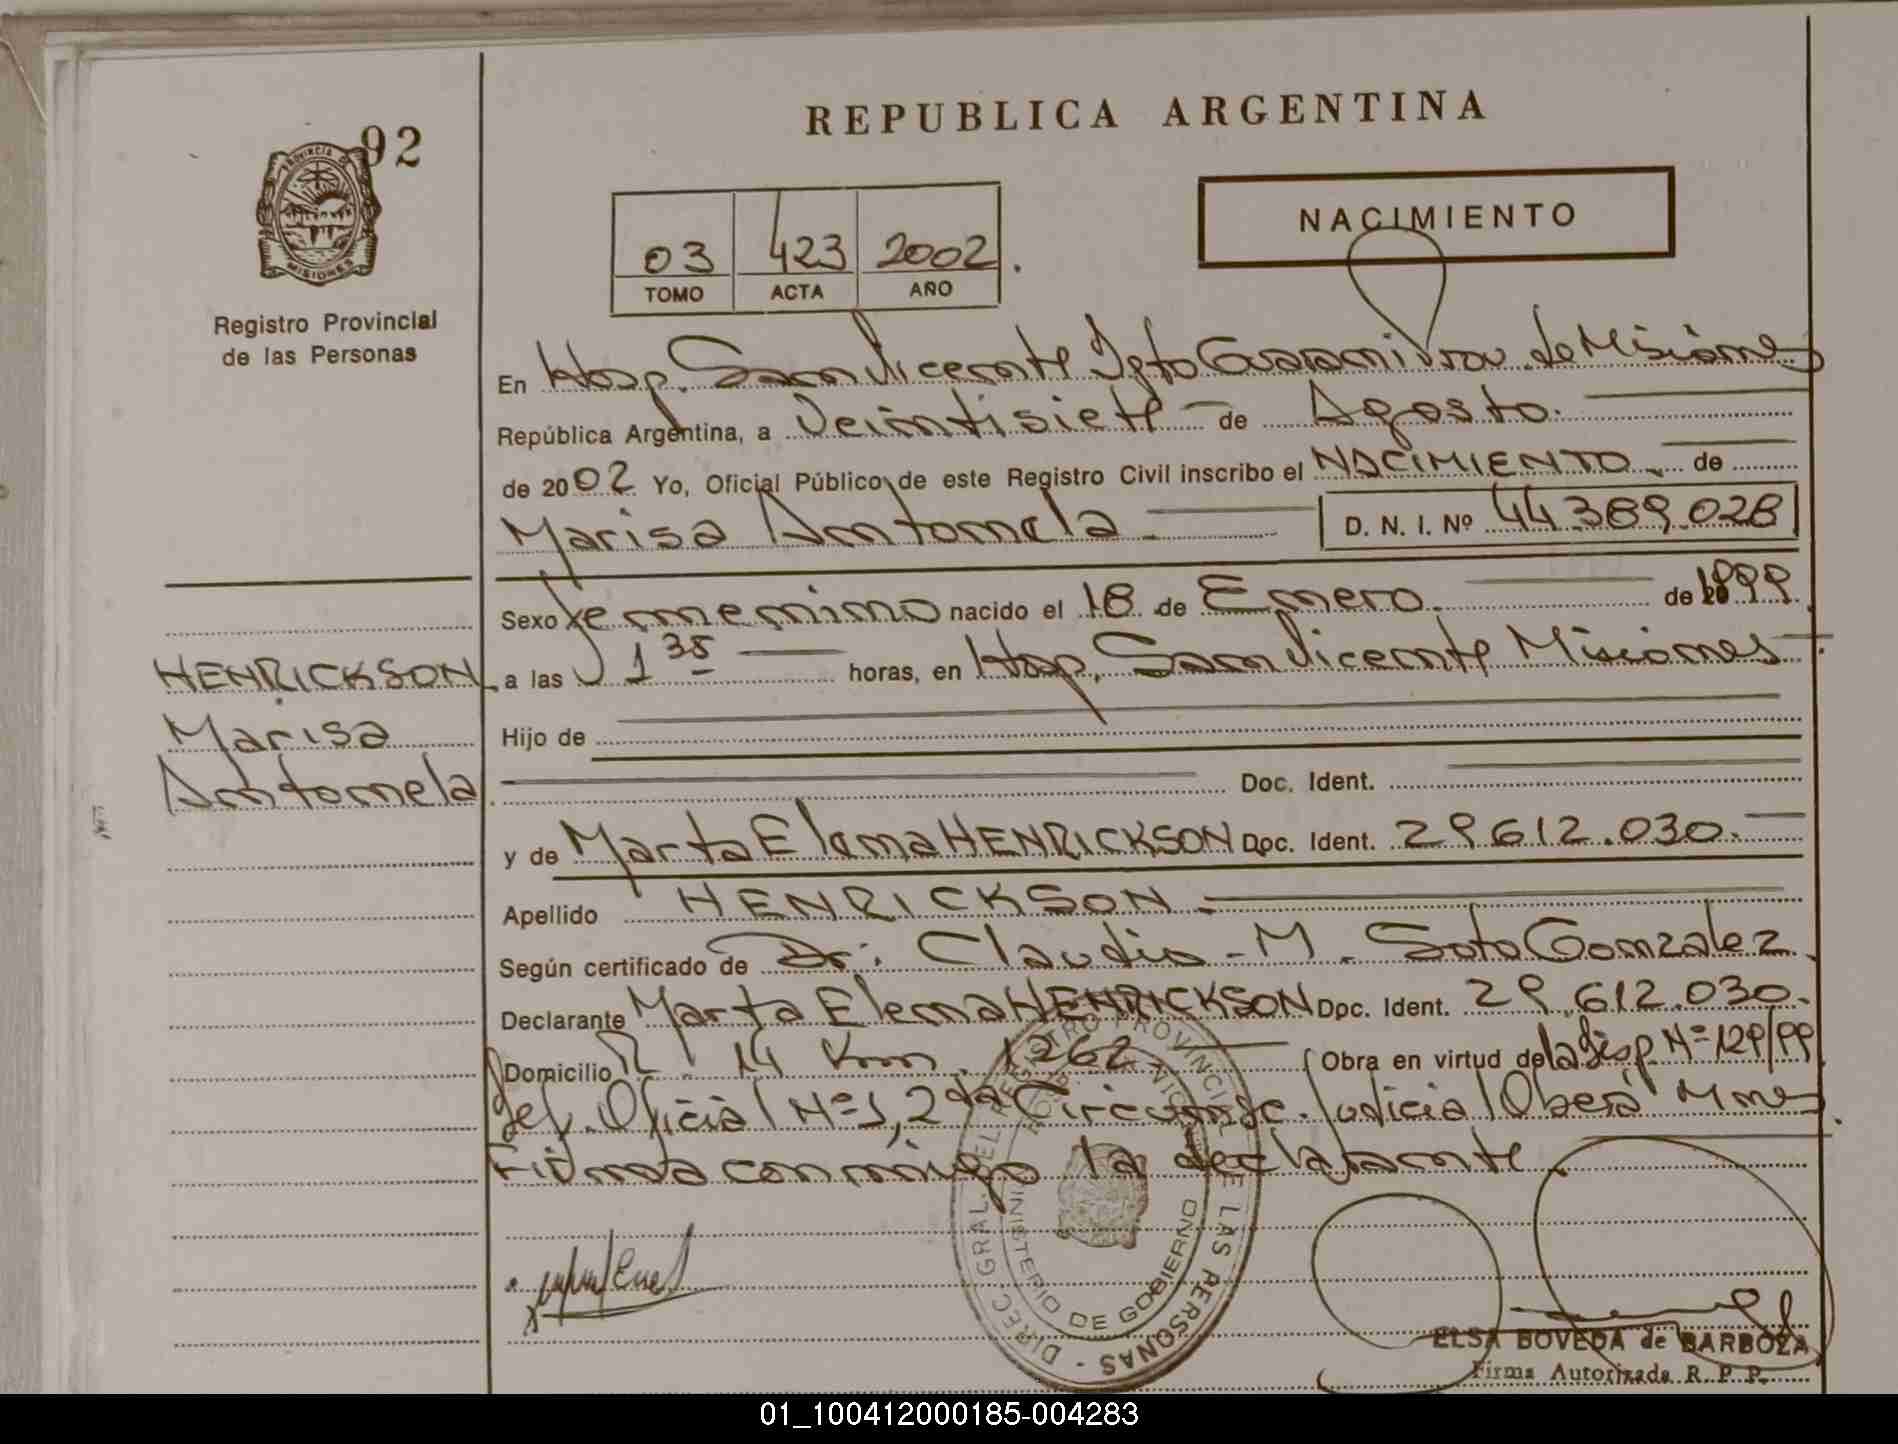 92
REPUBLICA ARGENTINA
PROVINCIA D
MISIONES
Registro Provincial
de las Personas
NACIMIENTO
03 423 2002.
TOMO ACTA AÑO
En Hosp. San Vicente Dpto Guarani Prov. de Misiones
República Argentina, a Veintisiete de Agosto.
de 2002 Yo, Oficial Público de este Registro Civil inscribo el NACIMIENTO de
Marisa Antonela D. N. I. Nº 44.389.028
Sexo Femenino nacido el 18 de Enero. de 1999.
HENRICKSON a las 1 35 horas, en Hosp. San Vicente Misiones
Marisa Hijo de
Antonela Doc. Ident.
y de Marta Elena HENRICKSON Doc. Ident. 29.612.030.
Apellido HENRICKSON
Según certificado de Dr: Claudio M. Soto Gonzalez
Declarante Marta Elena HENRICKSON Doc. Ident. 29.612.030.
Domicilio R. 14 Km. 1262 Obra en virtud de la Disp. Nº 129/99
Def. Oficial Nº 1, 2da Circunsc. Judicial Oberá Mnes.
Firma conmigo la declarante.
DIREC. GRAL. DEL REGISTRO PROVINCIAL DE LAS PERSONAS
MINISTERIO DE GOBIERNO
ELSA BOVEDA de BARBOZA
Firma Autorizada R. P. P.
01_100412000185-004283